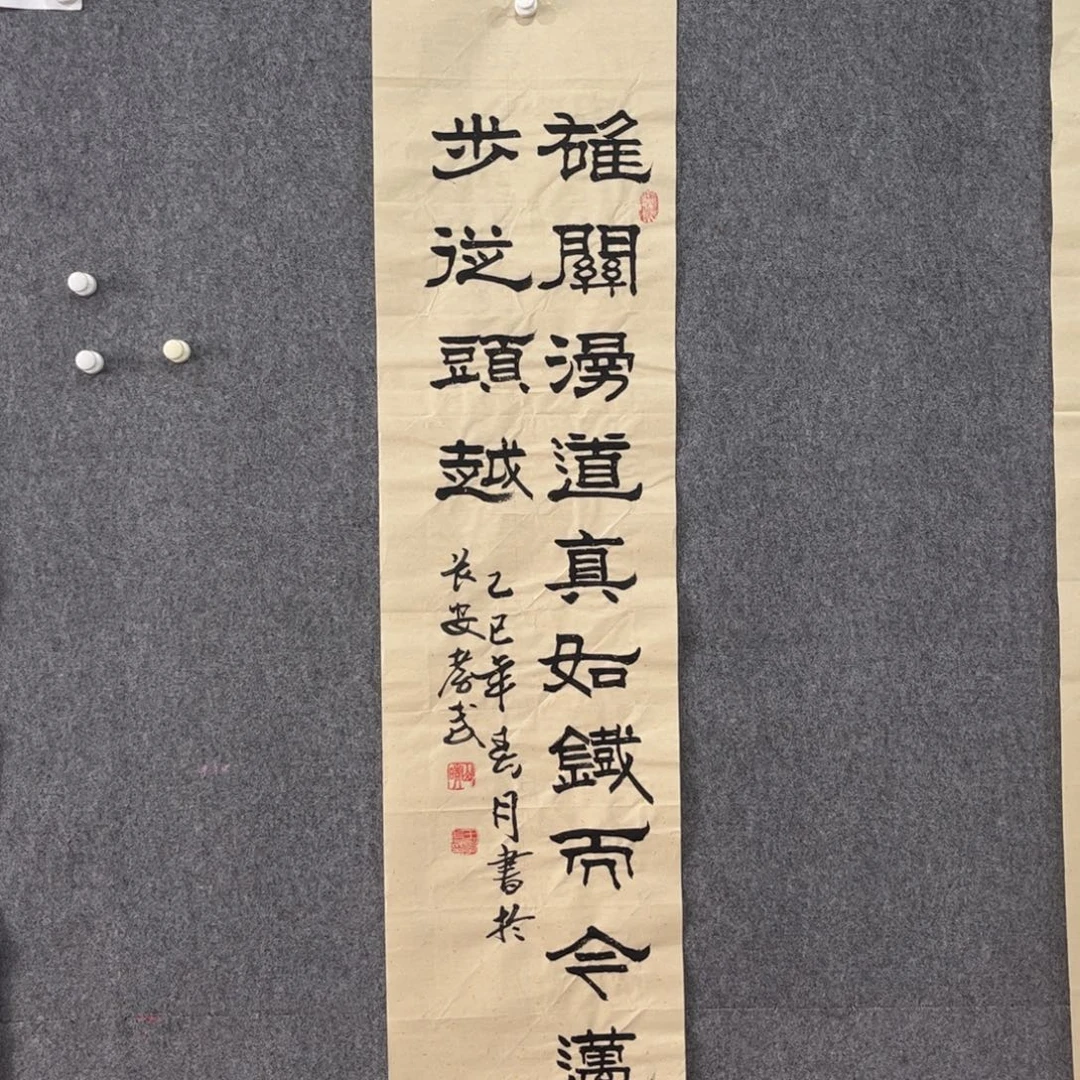 雄關漫道真如鐵而今邁
步從頭越
乙巳年春月書於
長安